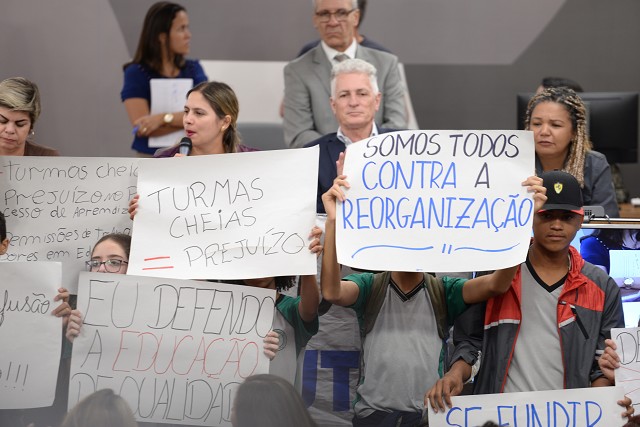 TURMAS CHEIA
PREJUÍZO NO
DE APRENDIZ
TURMAS
CHEIAS
= PREJUÍZO
SOMOS TODOS
CONTRA A
REORGANIZAÇÃO
EU DEFENDO
A EDUCAÇÃO
DE QUALIDADE
SE FUNDIR